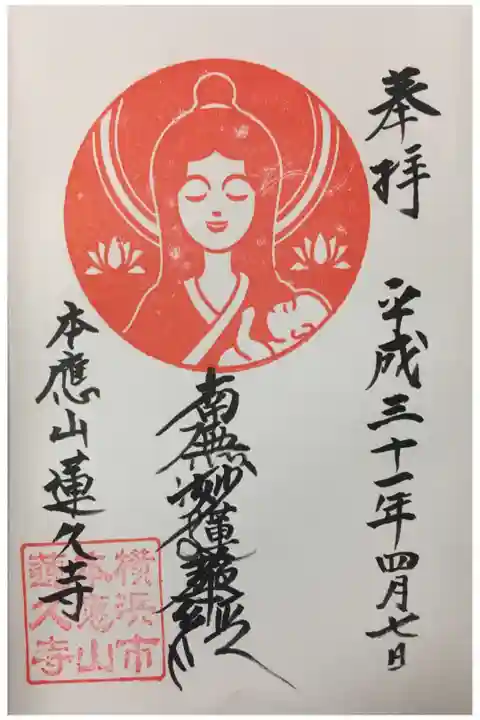 奉拝　平成三十一年四月七日
南無妙法蓮華經
本應山蓮久寺
横浜市
本應山
蓮久寺